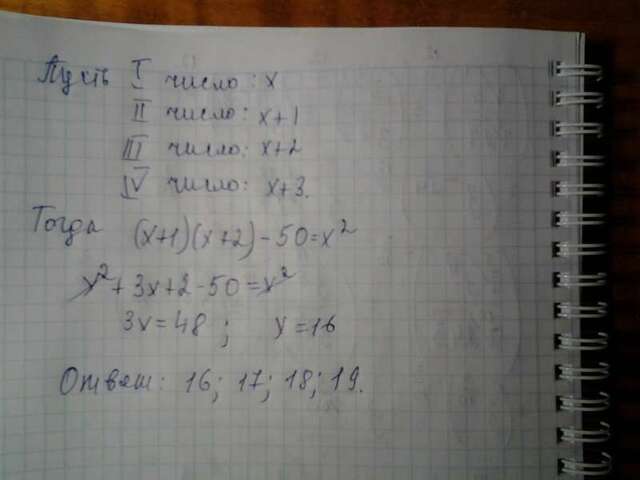 Пусть I число: x
II число: x+1
III число: x+2
IV число: x+3.
Тогда (x+1)(x+2)-50=x²
x²+3x+2-50=x²
3x=48; x=16
Ответ: 16; 17; 18; 19.